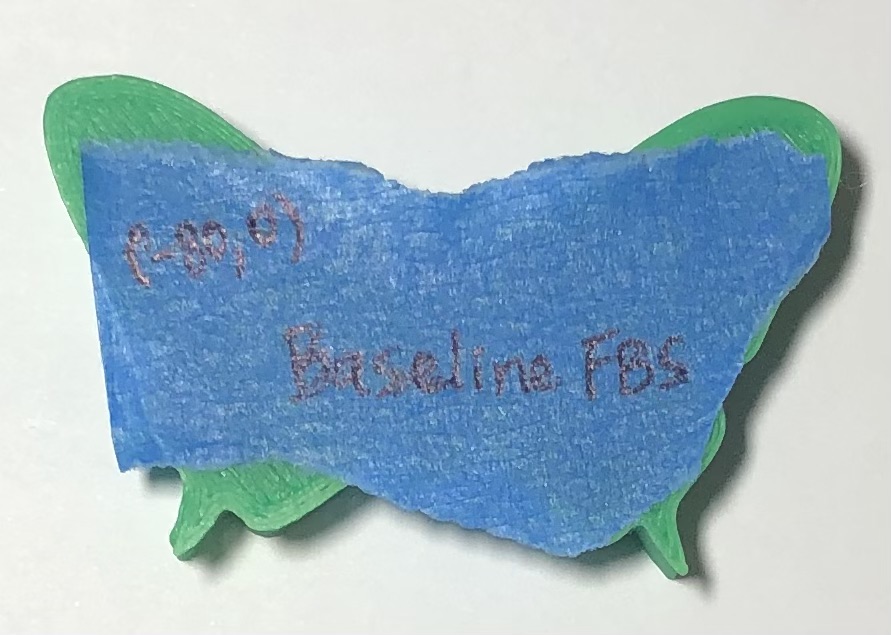 (-80,0)
Baseline FBS